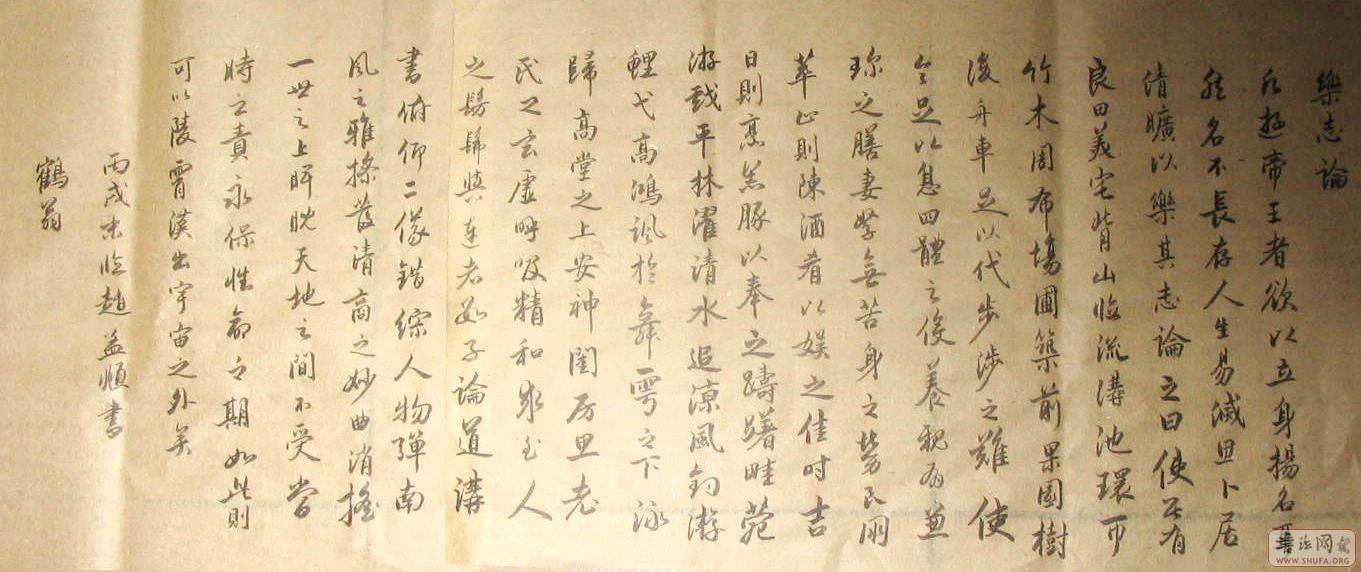 樂志論
凡遊帝王者欲以立身揚名耳
然名不長存人生易滅思卜居
清曠以樂其志論之曰使居有
良田美宅背山臨流溝池環帀
竹木周布塲圃築前果園樹
後舟車足以代步涉之難使
令足以息四體之役養親有兼
珍之膳妻孥無苦身之勞良朋
萃止則陳酒肴以娛之佳時吉
日則烹羔豚以奉之躊躇畦菀
游戲平林濯清水追凉風釣游
鯉弋高鴻諷於舞雩之下詠
歸高堂之上安神閨房思老
氏之玄虛呼吸精和求至人
之髣髴與達者數子論道講
書俯仰二儀錯綜人物彈南
風之雅操發清商之妙曲消搖
一世之上睥睨天地之間不受當
時之責永保性命之期如此則
可以陵霄漢出宇宙之外矣
丙戌末臨趙益順書
鶴翁
書法网
WWW.SHUFA.ORG